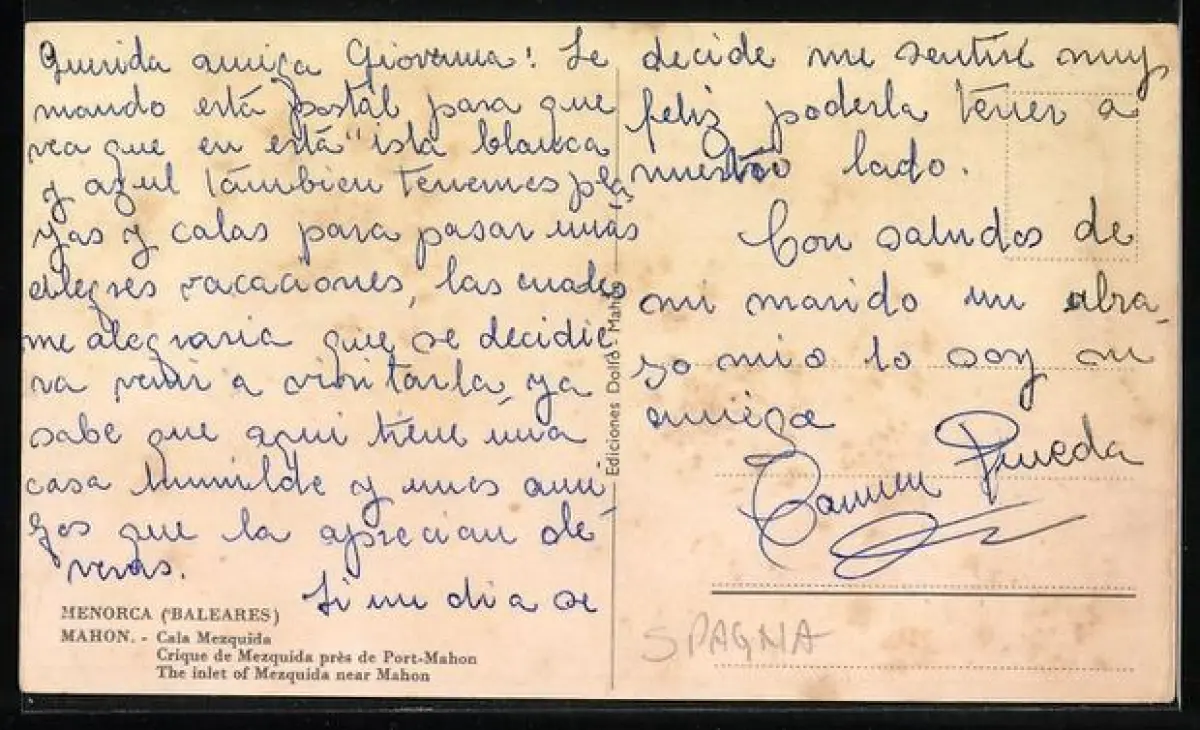 Querida amiga Giovanna: Le
mando está postal para que
vea que en está "isla blanca
y azul también tenemos pla
yas y calas para pasar unas
alegres vacaciones, las cuales
me alegraria que se decidie
ra venir a visitarla, ya
sabe que aqui tiene una
casa humilde y unos ami-
gos que la aprecian de
veras.
Si un dia se
decide me sentiré muy
feliz poderla tener a
nuestro lado.
Con saludos de
mi marido un abra-
zo mio lo soy su
amiga
Carmen Pineda
Ediciones Dolfo - Mahón
MENORCA (BALEARES)
MAHON. - Cala Mezquida
Crique de Mezquida près de Port-Mahon
The inlet of Mezquida near Mahon
SPAGNA